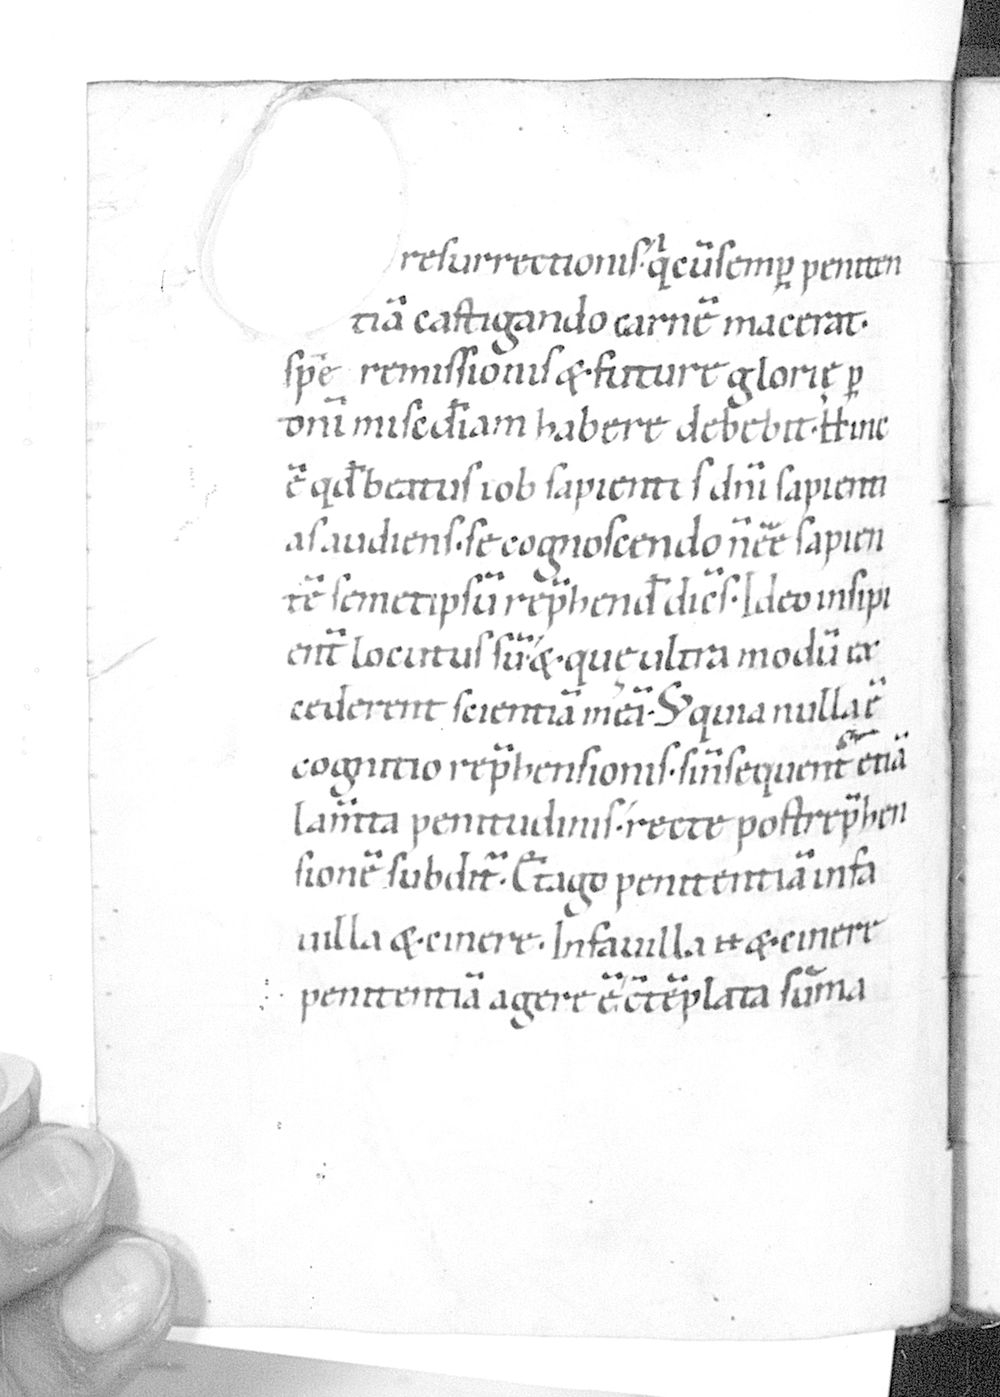 resurrectionis· qͥ cū semꝑ peniten
tiā castigando carnē macerat·
spē remissionis &· future glorię ꝑ
dnī misedīam habere debebit· Hinc
ē qd̄ beatus iob sapienti s dnī sapienti
as audiens· se cognoscendo nēē sapien
tē semetipsū rep̄hend̄ dic̄s· Ideo insipi
ent̄ locutus sū· &· quę ultra modū ex
cederent scientiā mēā· S; quia nulla ē
cognitio rep̄hensionis· sin̄ sequent̄ etiā
lam̄ta penitudinis· recte post rep̄hen
sionē subdit̄· C̄t ago penitentiā in fa
uilla &· cinere· In fauilla tt &· cinere
penitentiā agere ē· c̄tēplata sūma